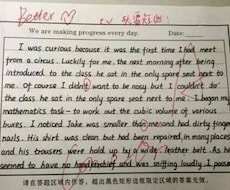 Better
We are making progress every day. Date:
I was curious because it was the first time I had meet
from a circus. Luckily for me, the next morning after being
introduced to the class he sat in the only spare seat next to
me. Of course I didn't want to be nosy but I couldn't to
the class he sat in the only spare seat next to me. I began my
mathematics task - to work out the cubic volume of various
buses. I noticed Jake was smaller than me and had dirty finger
nails. His shirt was clean but had been repaired, in many places
and his trousers were hold up by a wide leather belt. As he
seemed to have no handkerchief and was sniffing loudly, I passed
请在答题区域内作答，超出黑色矩形边框限定区域的答案